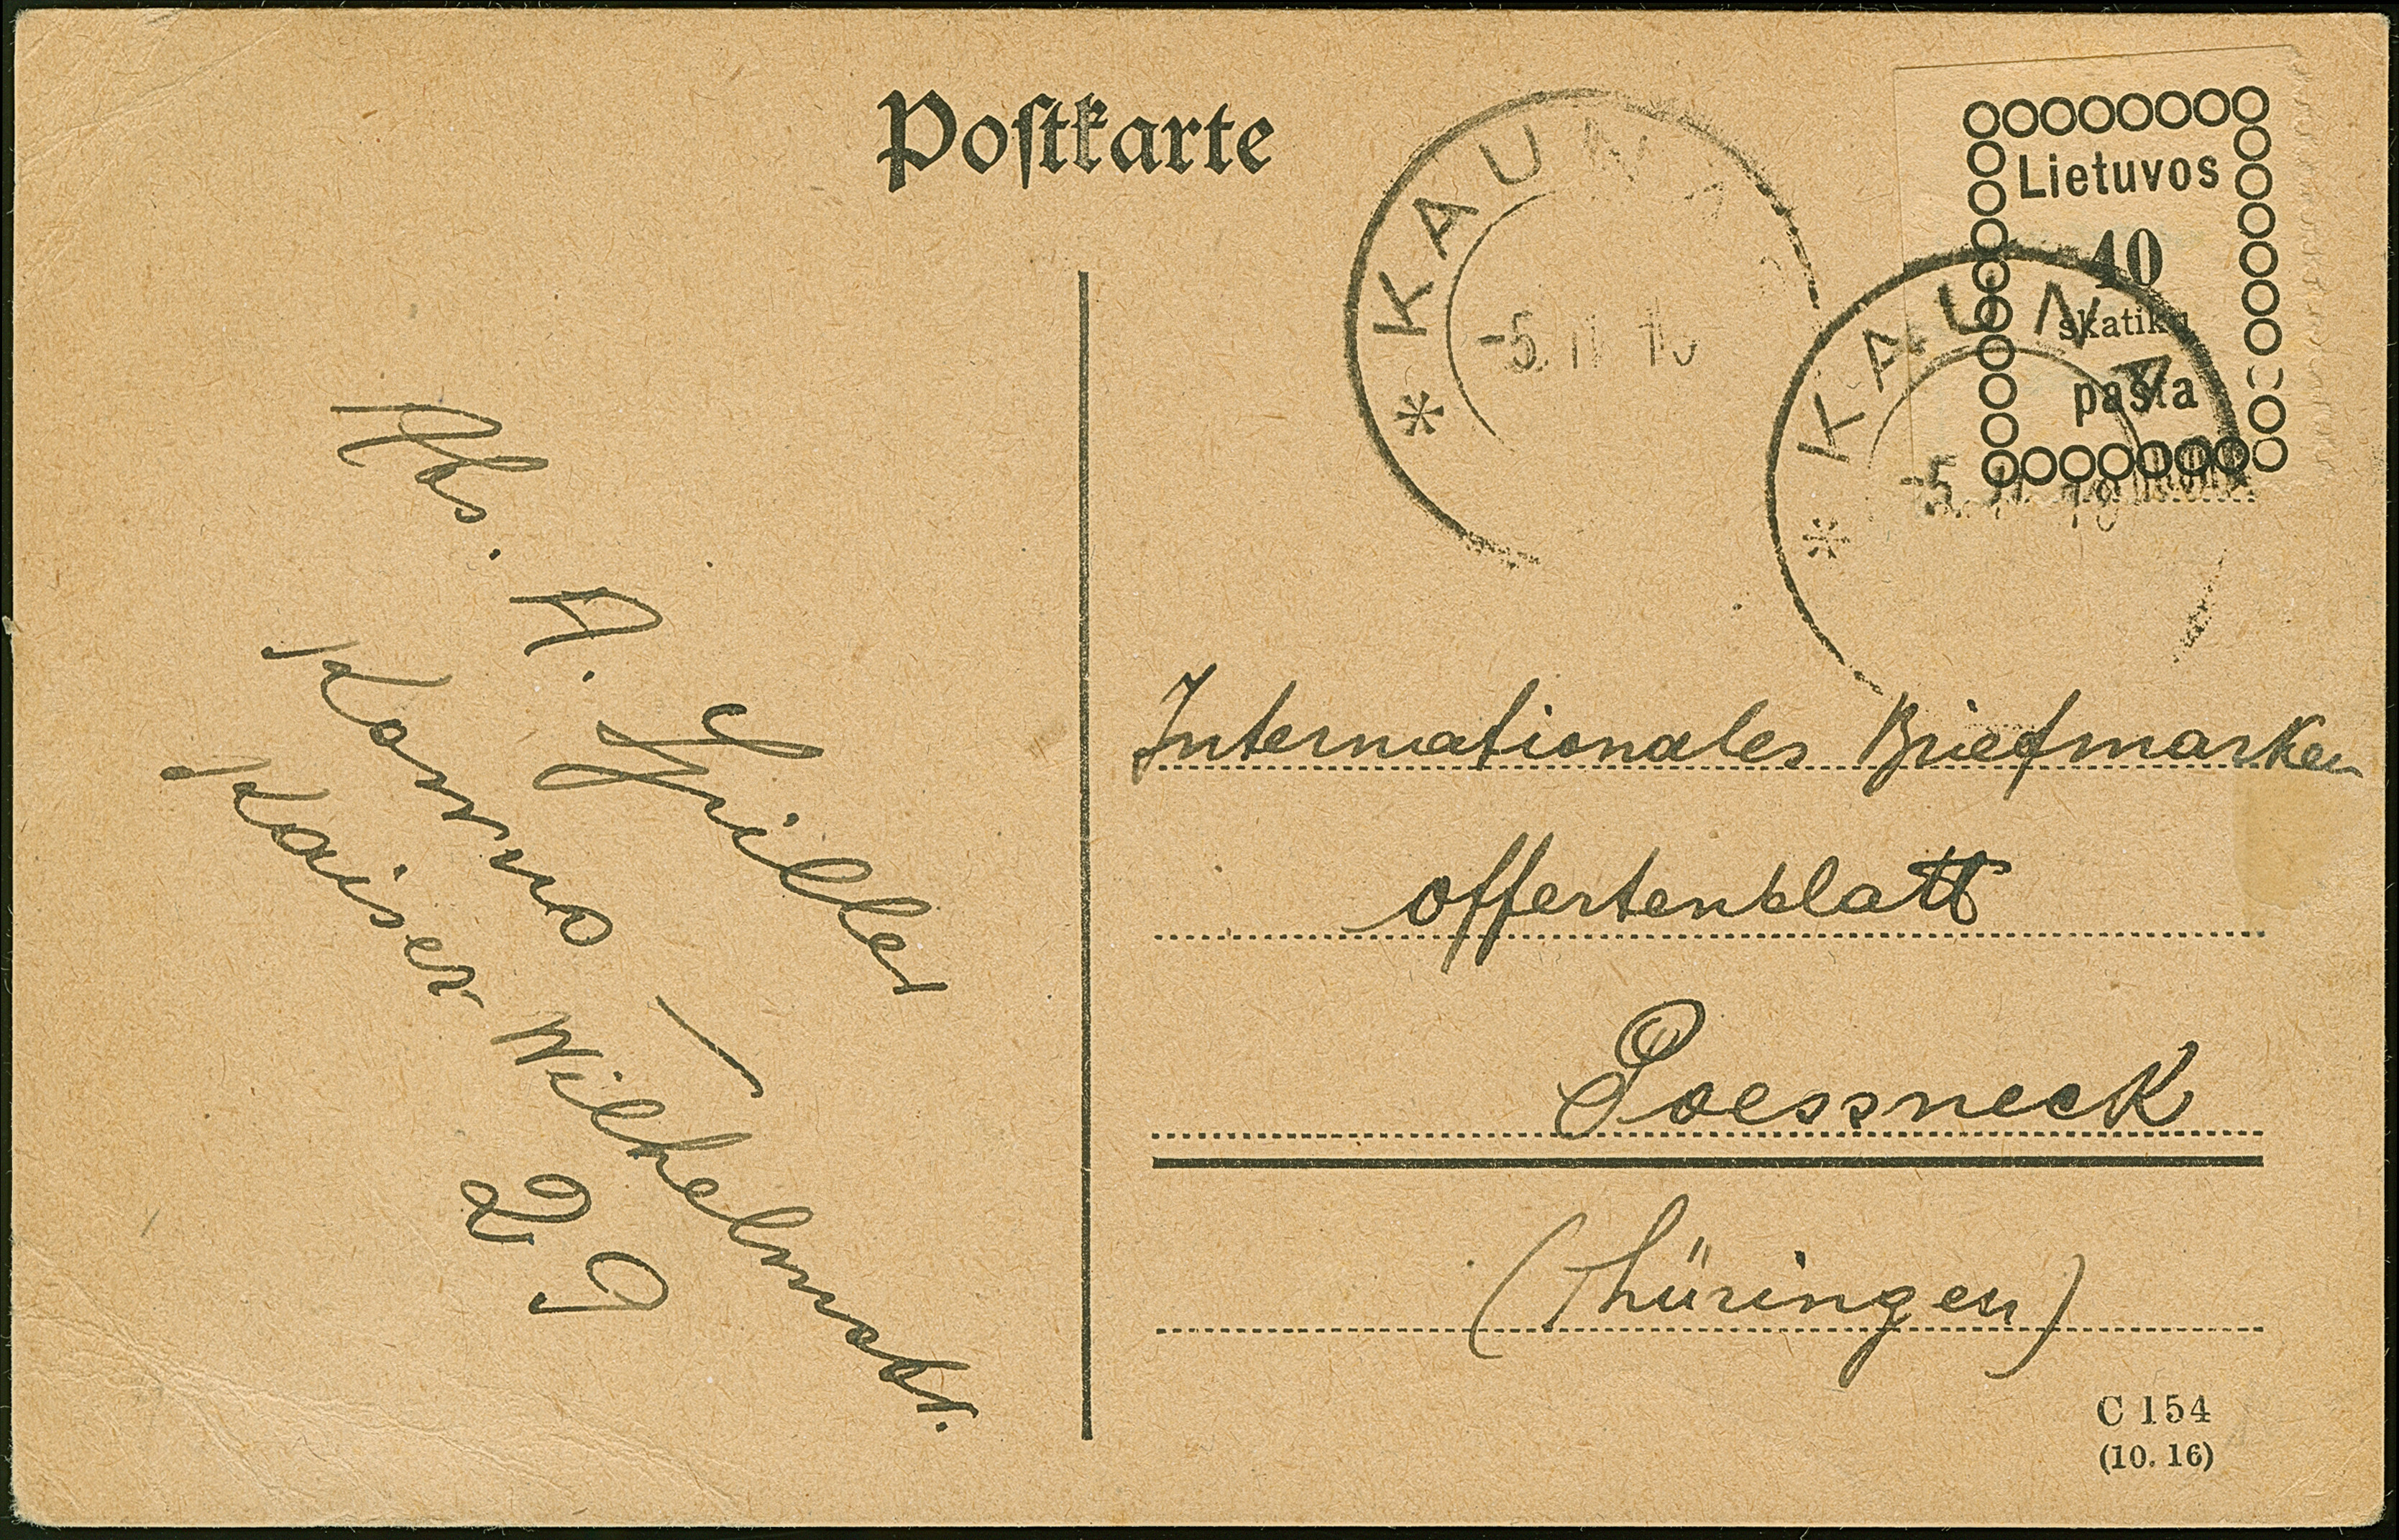 Postkarte
* KAUNA
-5. II
Lietuvos
40
skatikų
pašta
* KAUNA
-5. II 19
Abs. A. Hiller
Kowno
Kaiser Wilhelmstr.
29
Internationales Briefmarken
offertenblatt
Poessneck
(Thüringen)
C 154
(10. 16)